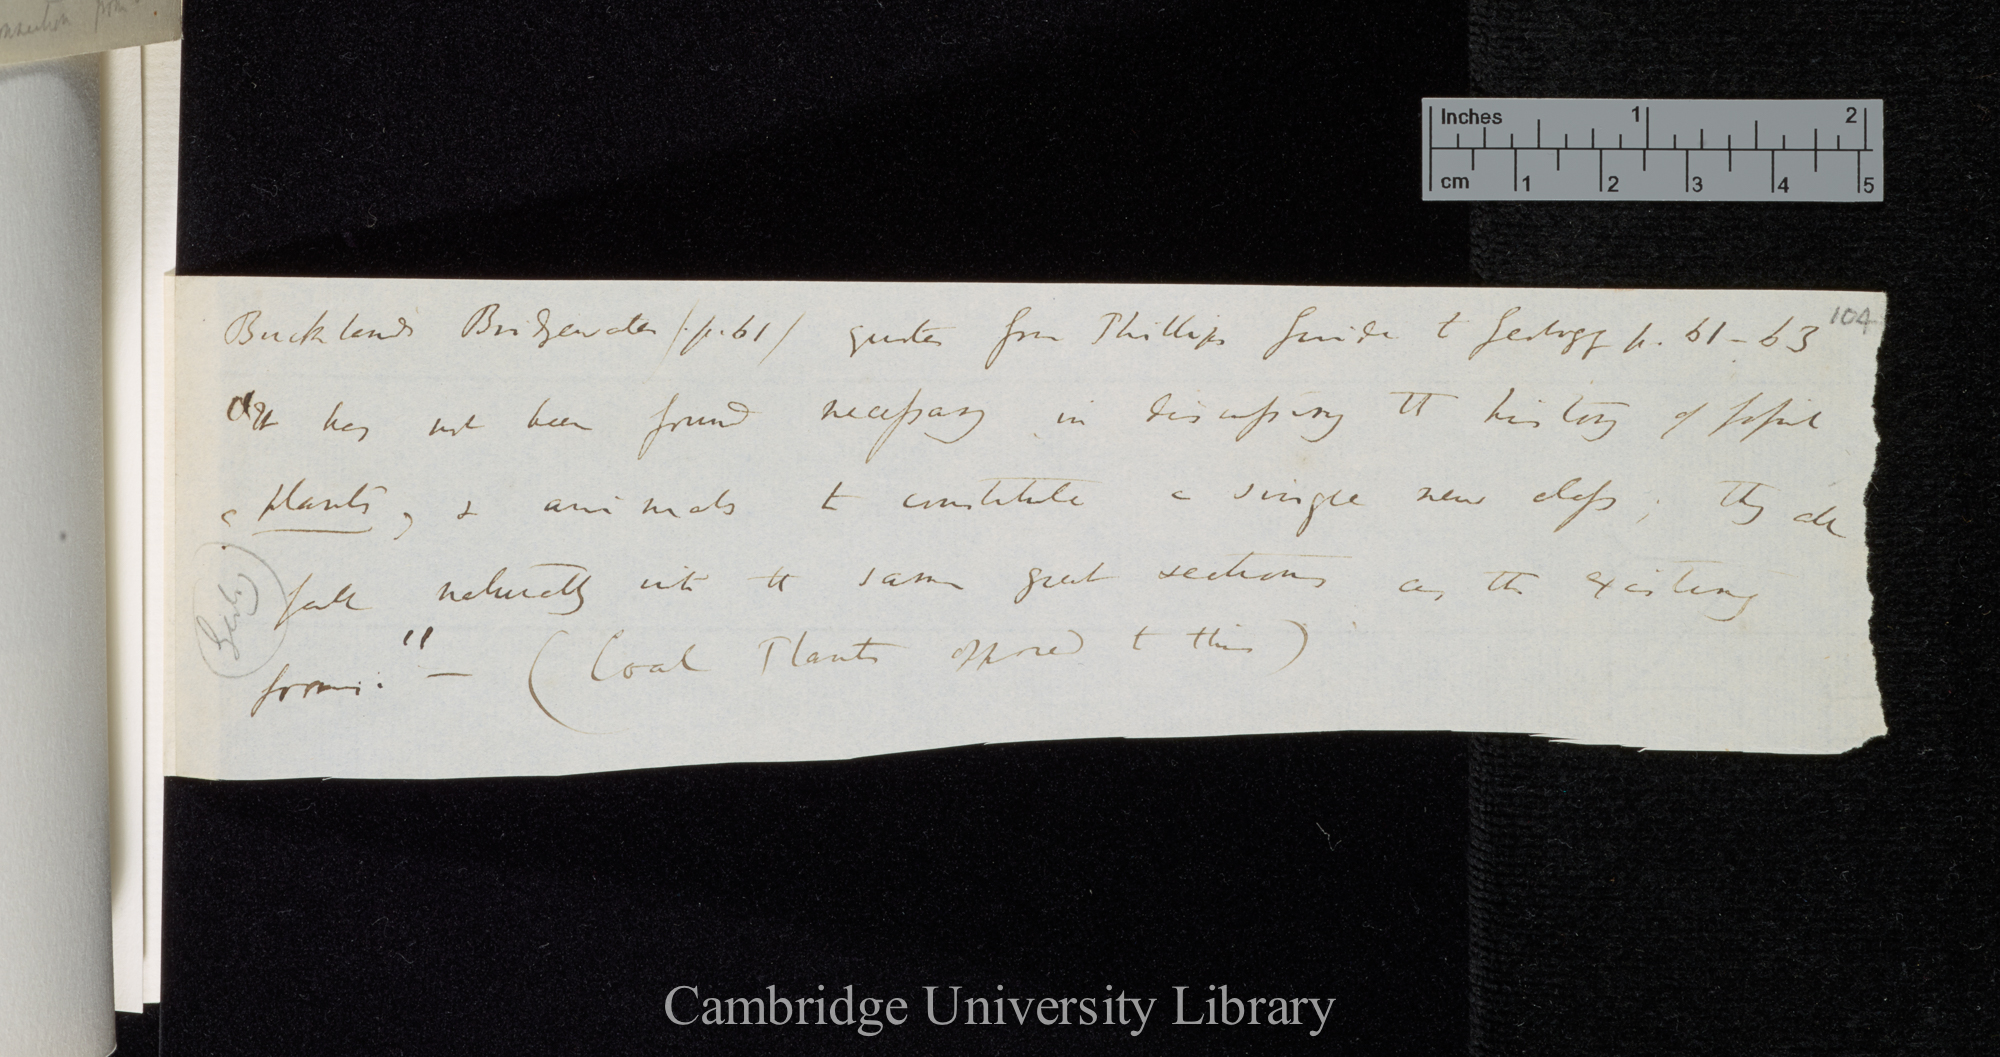 Inches 1 2
cm 1 2 3 4 5
104
Bucklands Bridgewater /p. 61/ quotes from Phillips Guide to Geology p. 61–63
"It has not been found necessary in discussing the history of fossil
plants, & animals to constitute a single new class; they all
fall naturally into the same great sections as the existing
forms." — (Coal Plants opposed to this)
Cambridge University Library